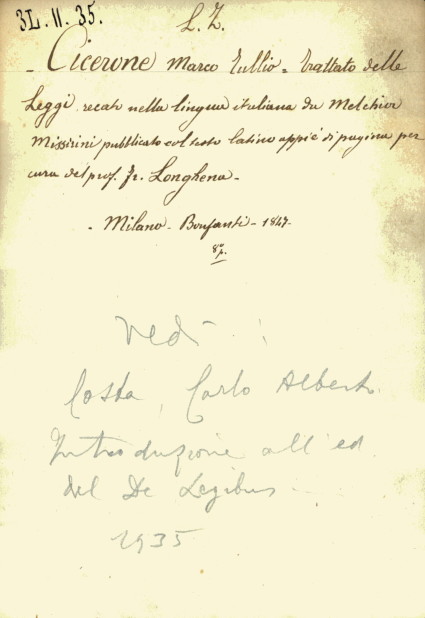 3L.II.35.
L. Z.
- Cicerone Marco Tullio = trattato delle
Leggi recato nella lingua italiana da Melchior
Missirini pubblicato col testo latino appiè di pagina per
cura del prof. Fr. Longhena -
- Milano - Bonfanti - 1847 -
8º
Vedi :
Costa, Carlo Alberto.
Introduzione all' ed.
del De Legibus
1935